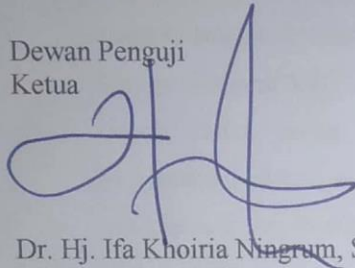 Dewan Penguji
Ketua
Dr. Hj. Ifa Khoiria Ningrum, S